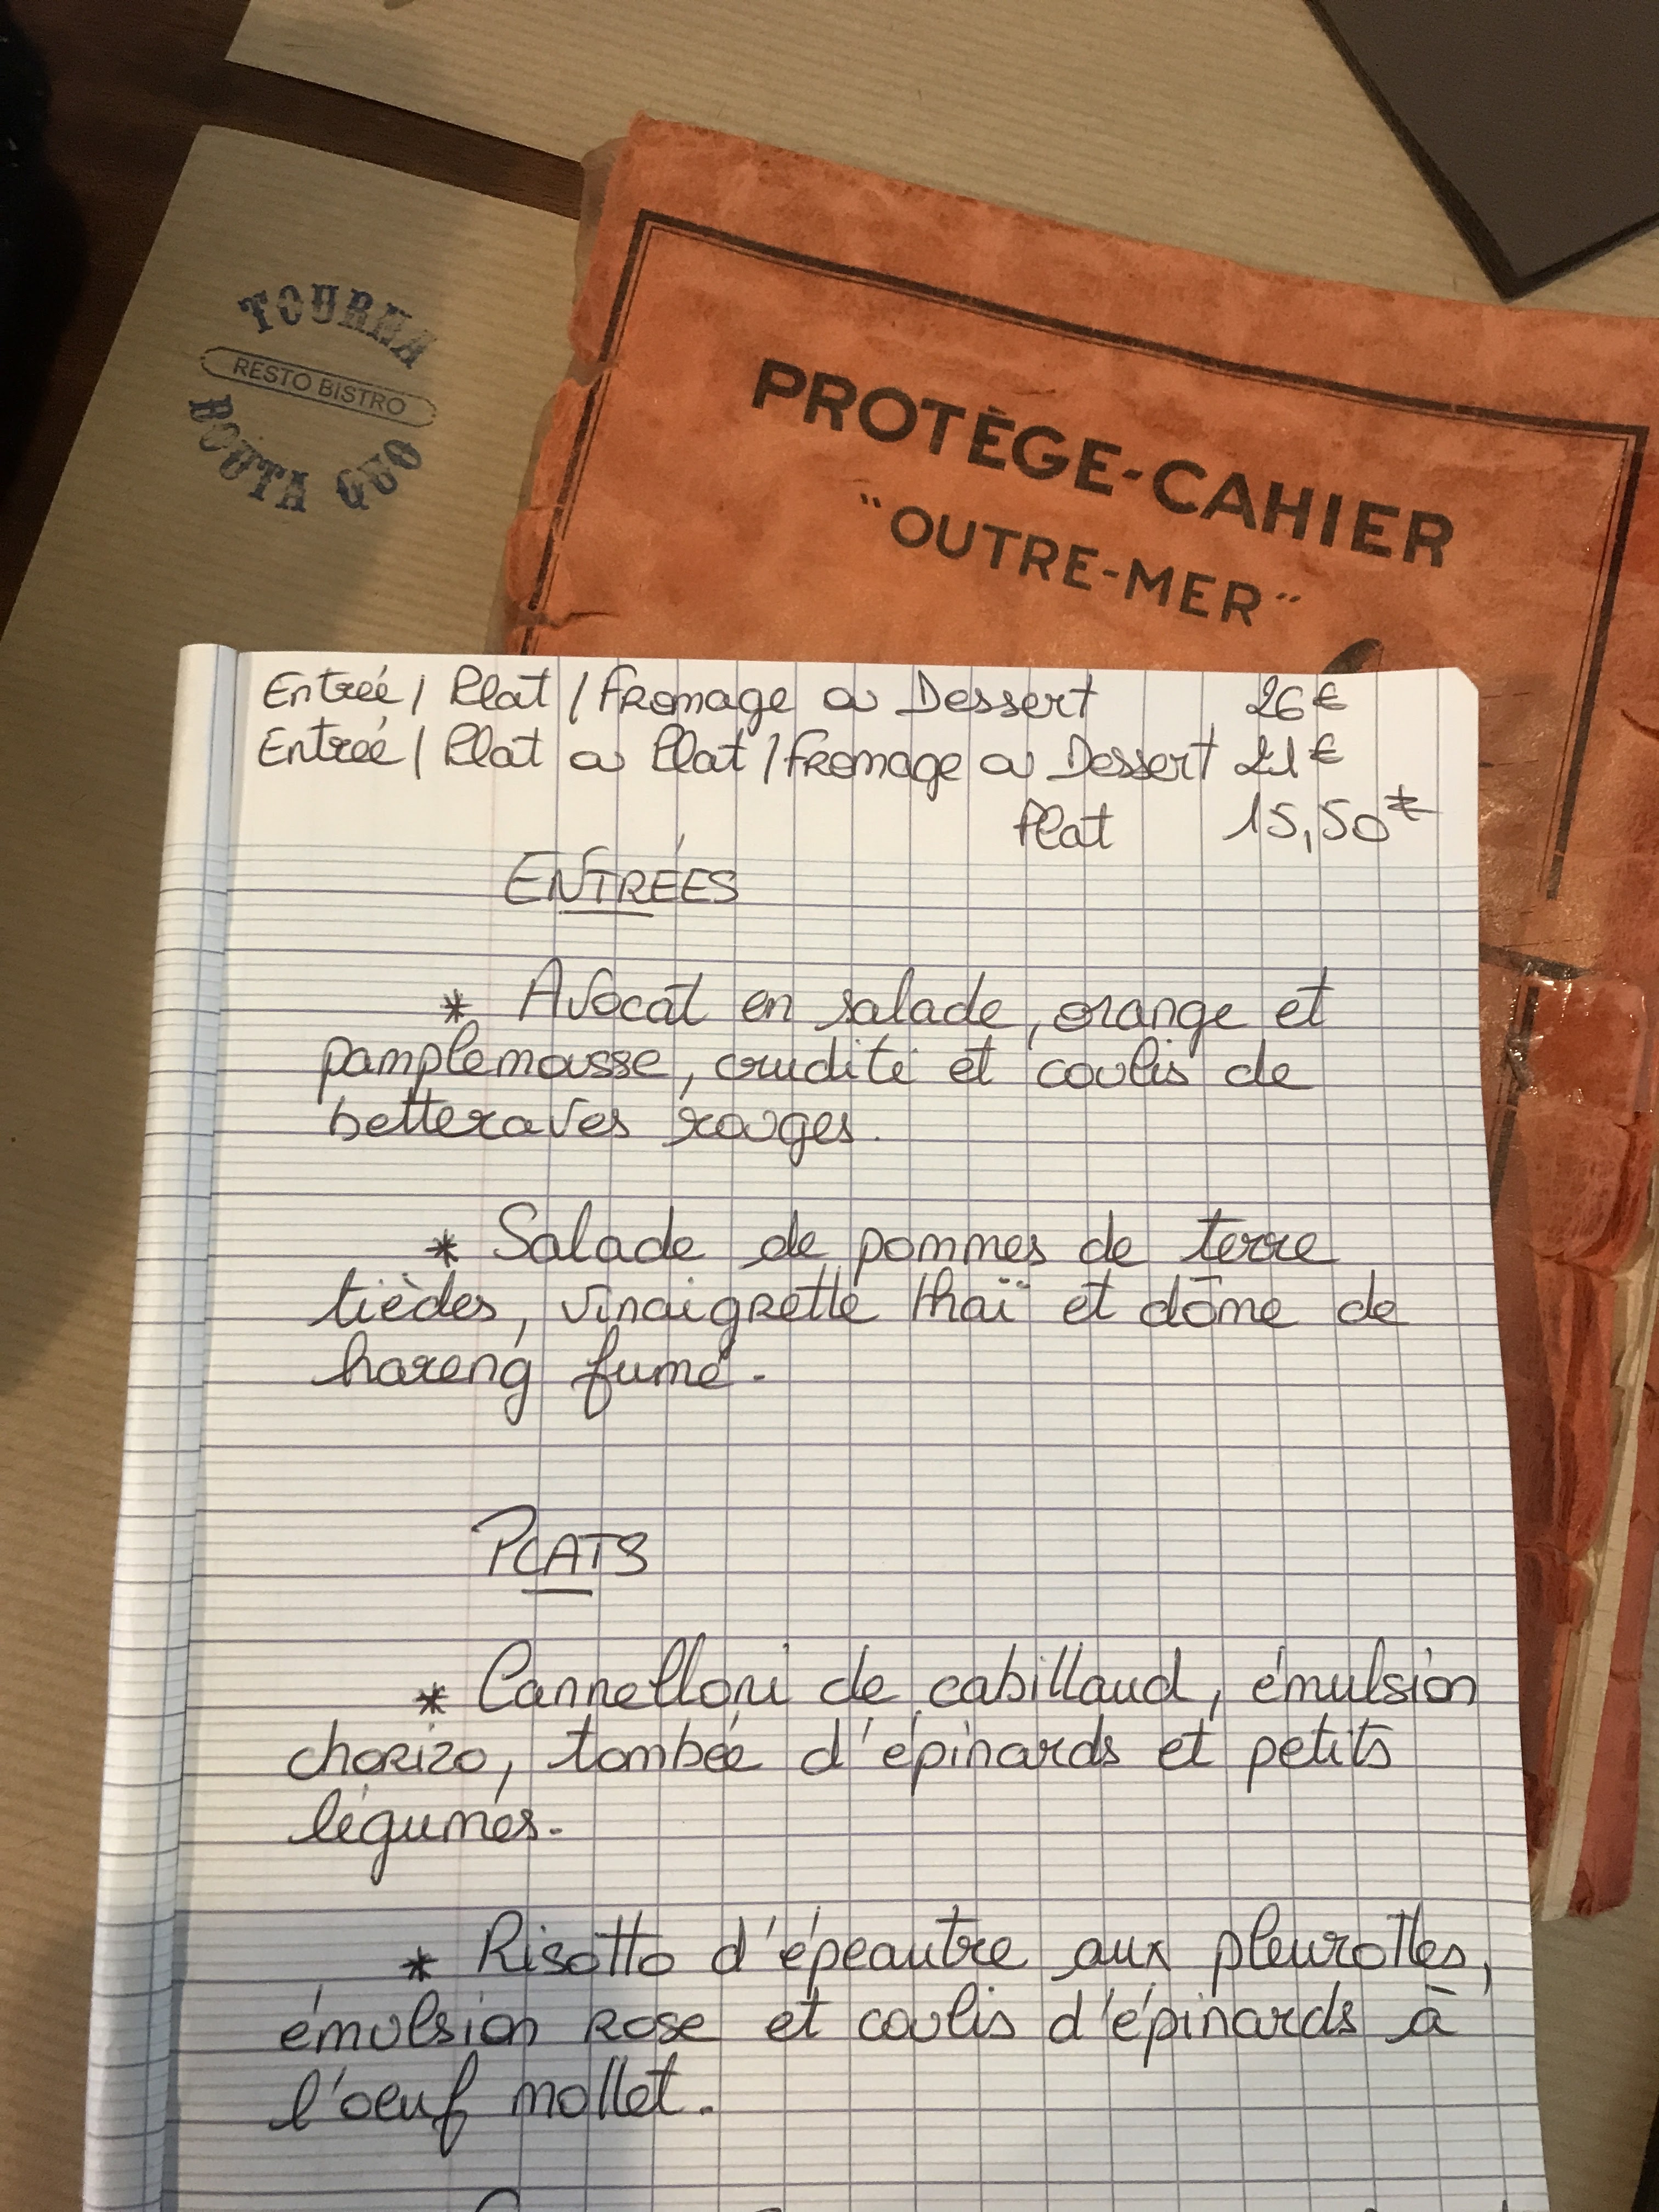 TOURNA
RESTO BISTRO
BOUTA GUO
PROTÈGE-CAHIER
"OUTRE-MER"
Entrée / Plat / Fromage ou Dessert 26€
Entrée / Plat ou Plat / Fromage ou Dessert 21€
Plat 15,50€
ENTRÉES
* Avocat en salade, orange et
pamplemousse, crudité et coulis de
betteraves rouges.
* Salade de pommes de terre
tièdes, vinaigrette thaï et dôme de
hareng fumé.
PLATS
* Cannelloni de cabillaud, émulsion
chorizo, tombée d'épinards et petits
légumes.
* Risotto d'épeautre aux pleurottes,
émulsion rose et coulis d'épinards à
l'oeuf mollet.